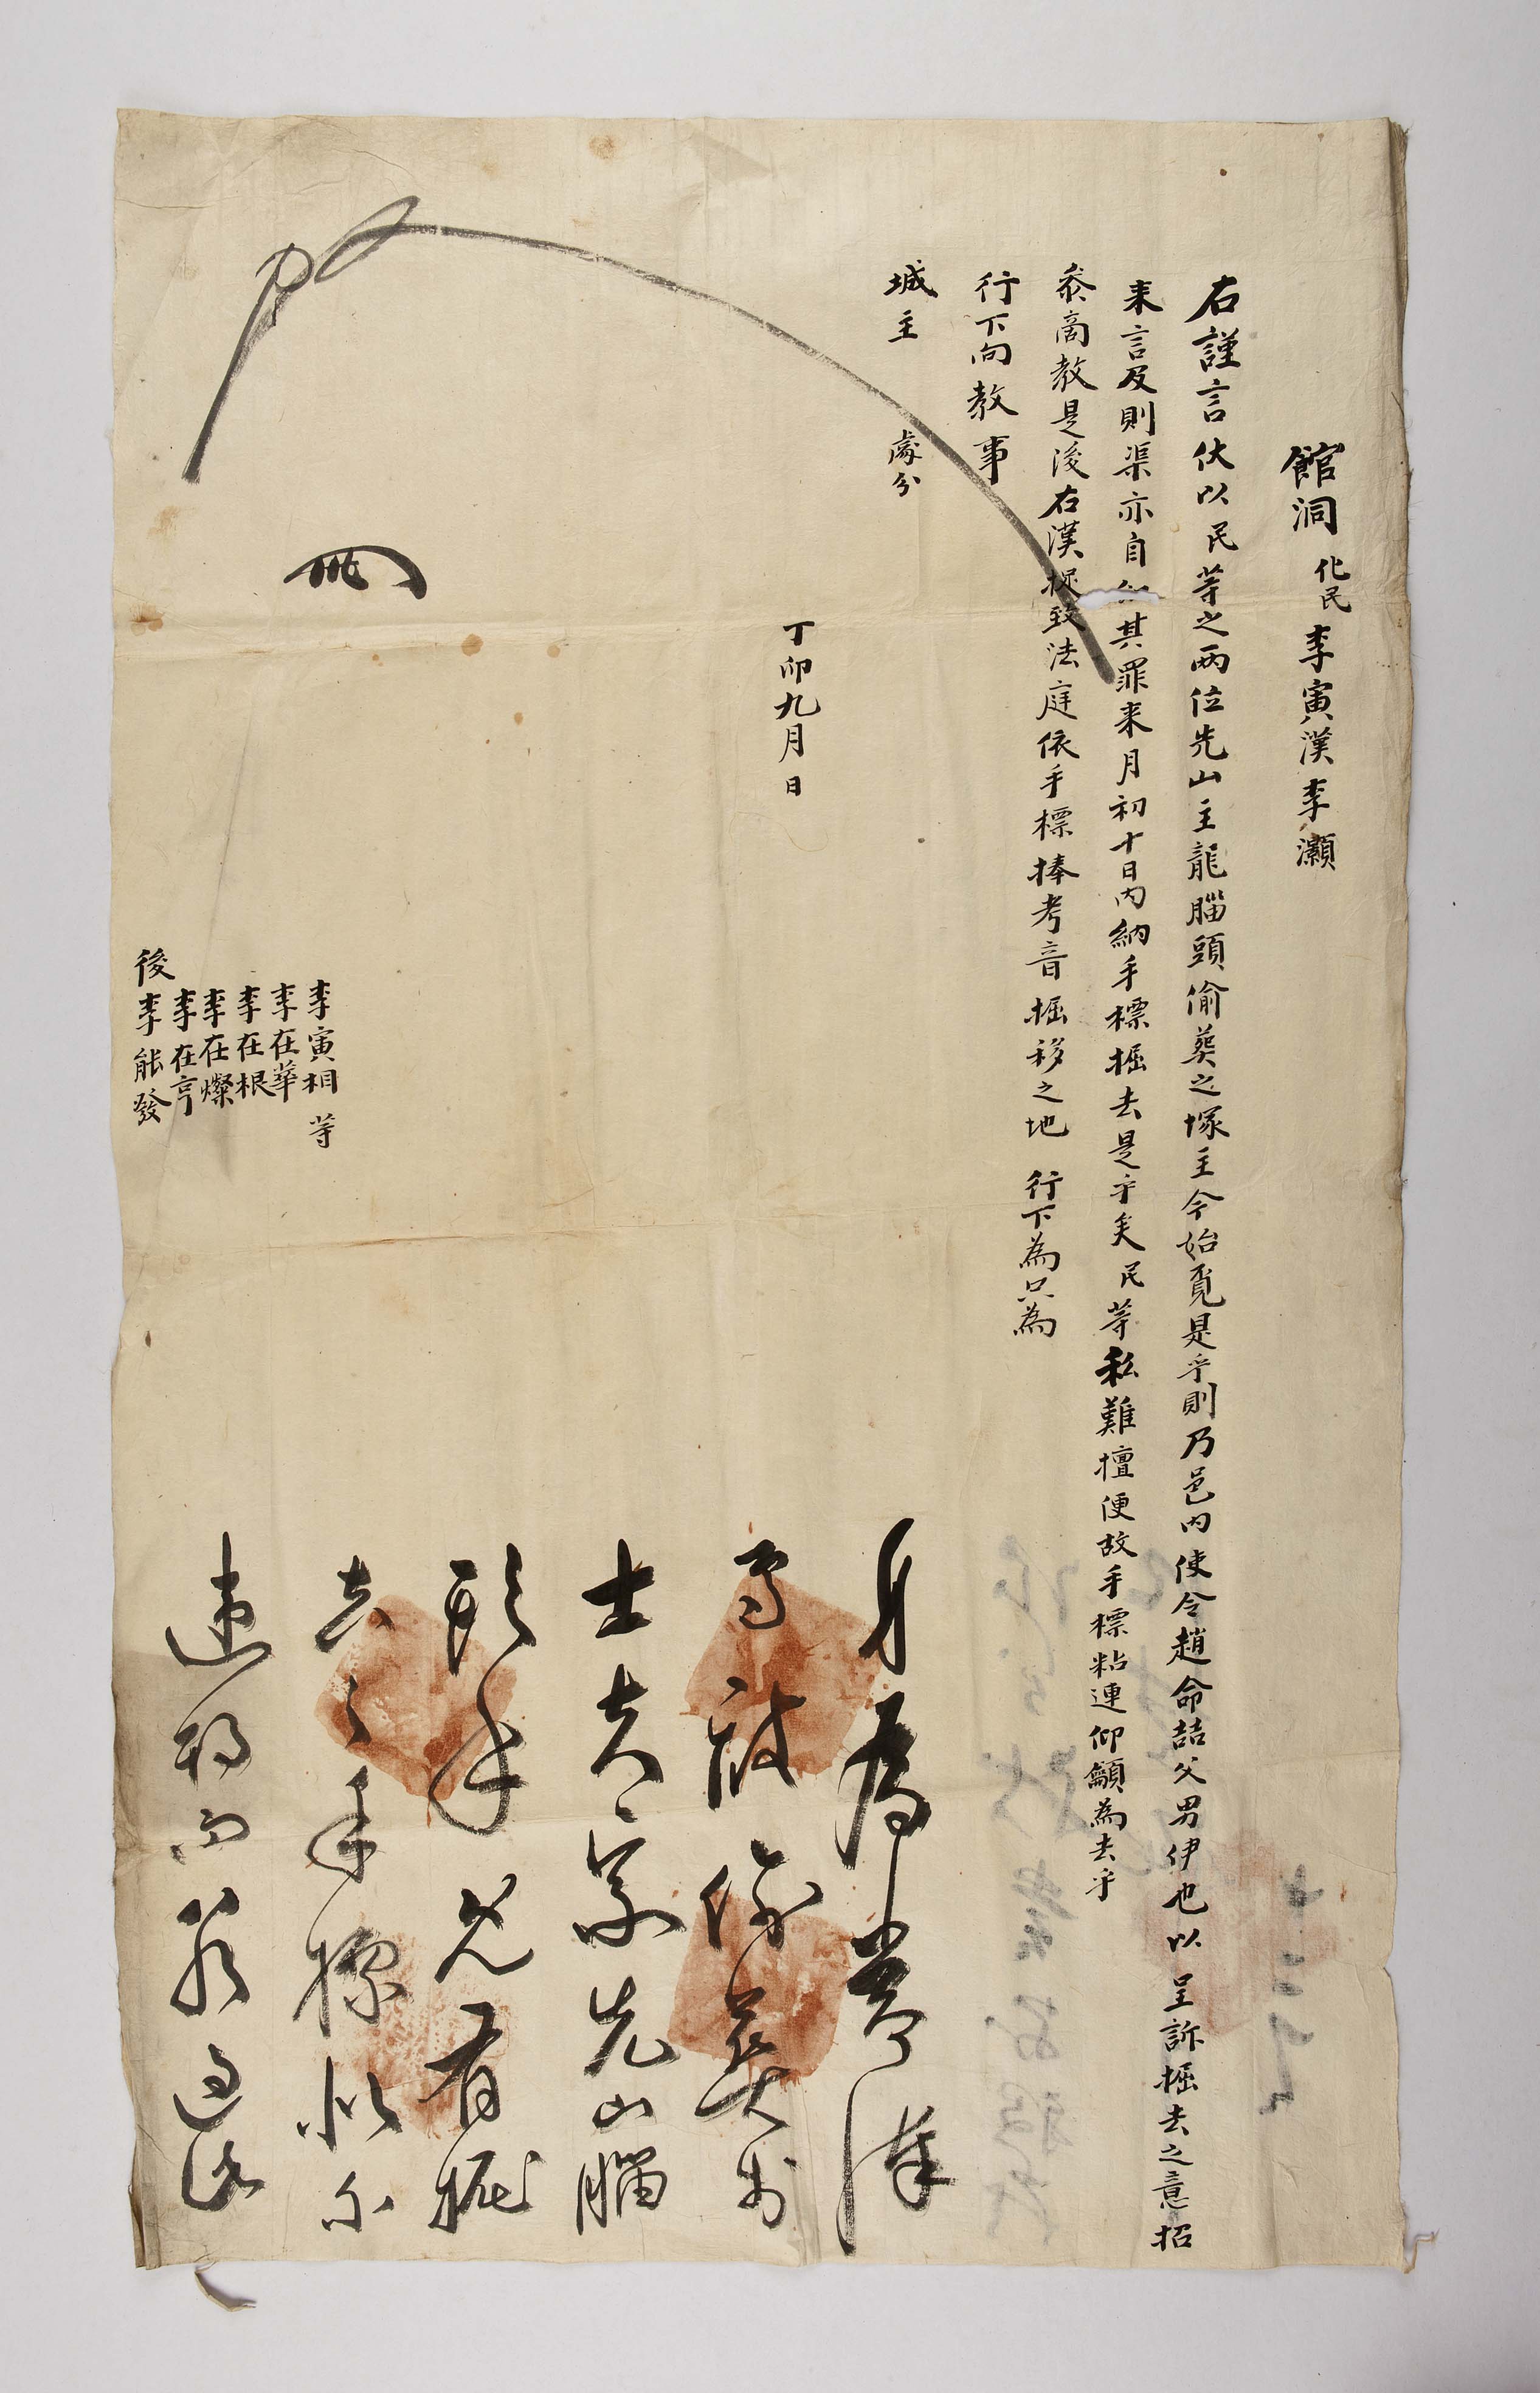 館洞 化民 李寅漢 李灝
右謹言伏以民等之兩位先山主龍腦頭偷葬之塚主今始覓是乎則乃邑內使令趙命喆父男伊也以 呈訴掘去之意招
来言及則渠亦自 其罪来月初十日內納手標掘去是乎矣民等私難擅便故手標粘連仰龥為去乎
叅商教是後右漢捉致法庭依手標捧考音掘移之地 行下為只為
行下向教事
城主 處分
丁卯九月 日
身為
偷葬於
士夫家先山腦
頭 有掘
去之手標 尓
速
李寅相 等
李在華
李在根
李在燦
李在亨
後 李能發